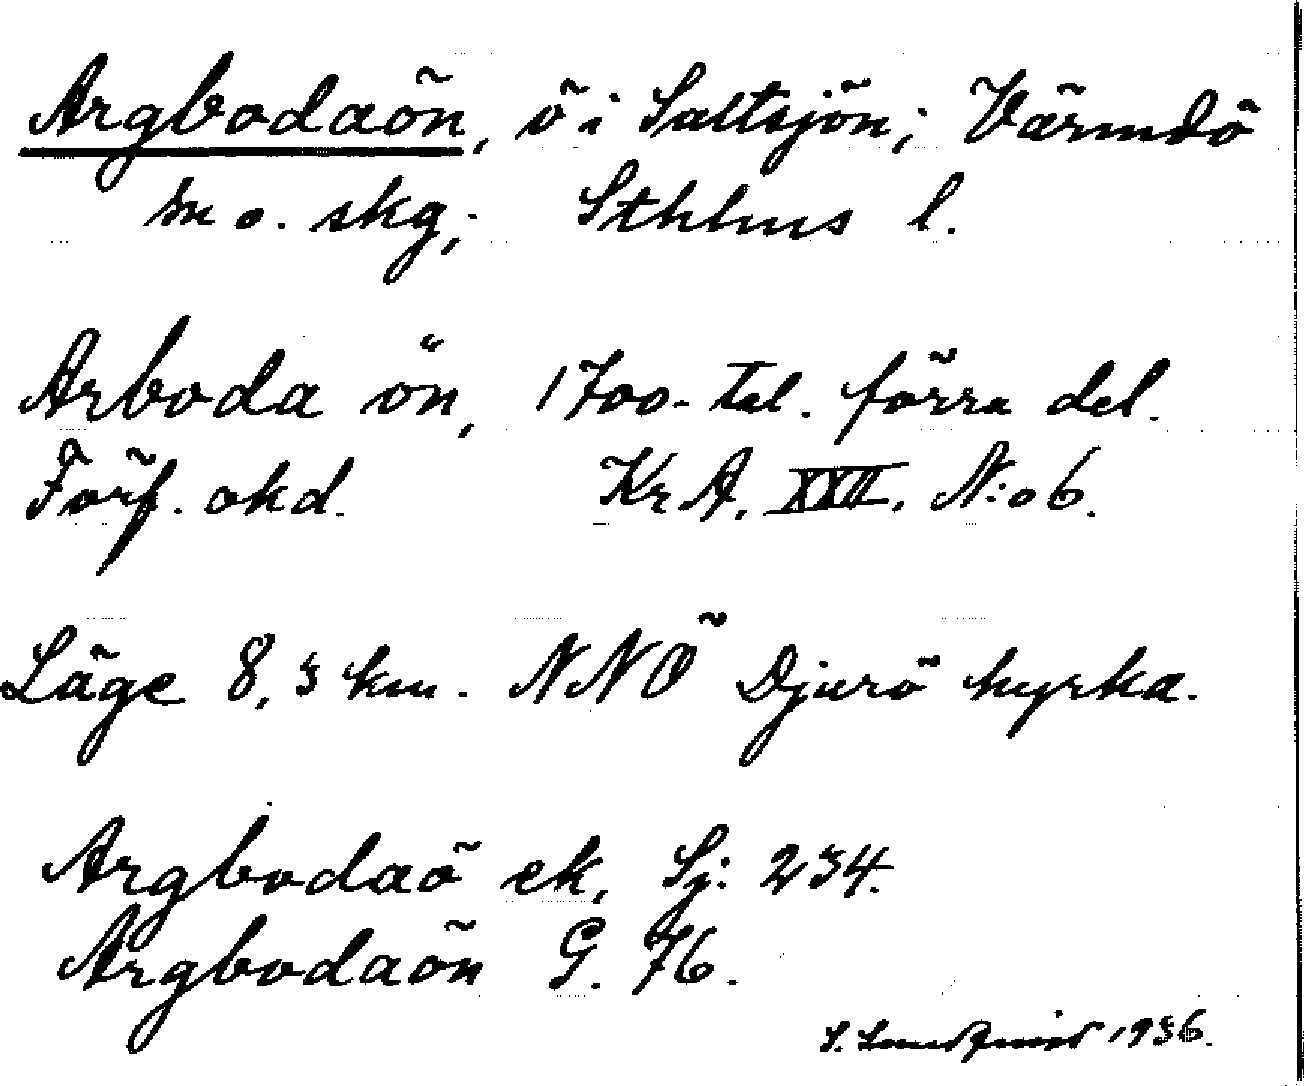 Argbodaön, ö i Saltsjön; Värmdö
sn o. skg; Sthlms l.
Arboda ön, 1700-tal. förra del.
Förf. okd. KrA. XXII. N:o 6.
Läge 8,3 km. NNÖ Djurö kyrka.
Argbodaö ek. Sj: 234.
Argbodaön G. 76.
S. Lundqvist 1936.